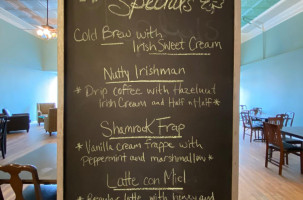 Specials
Cold Brew with
Irish Sweet Cream
Nutty Irishman
* Drip coffee with hazelnut
Irish Cream and Half & Half *
Shamrock Frap
* Vanilla cream frappe with
peppermint and marshmallow *
Latte con Miel
* Regular latte with honey and